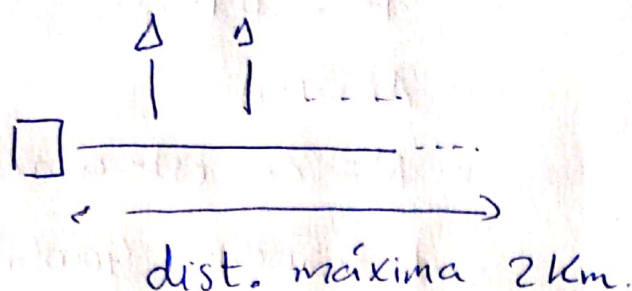 dist. máxima 2 Km.